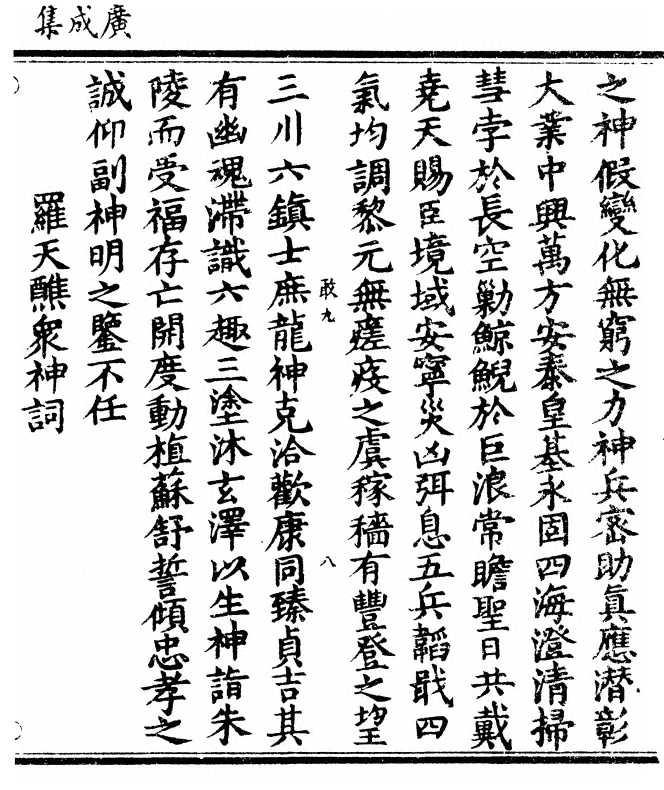 廣成集
之神假變化無窮之力神兵密助眞應潜彰
大業中興萬方安泰皇基永固四海澄清掃
彗孛於長空勦鯨鯢於巨浪常瞻聖日共戴
堯天賜臣境域安寧災凶弭息五兵韜戢四
氣均調黎元無瘥疫之虞稼穡有豐登之望
敢九
八
三川六鎮士庶龍神克洽歡康同臻貞吉其
有幽魂滯識六趣三塗沐玄澤以生神詣朱
陵而受福存亡開度動植蘇舒誓傾忠孝之
誠仰副神明之鑒不任
羅天醮衆神詞